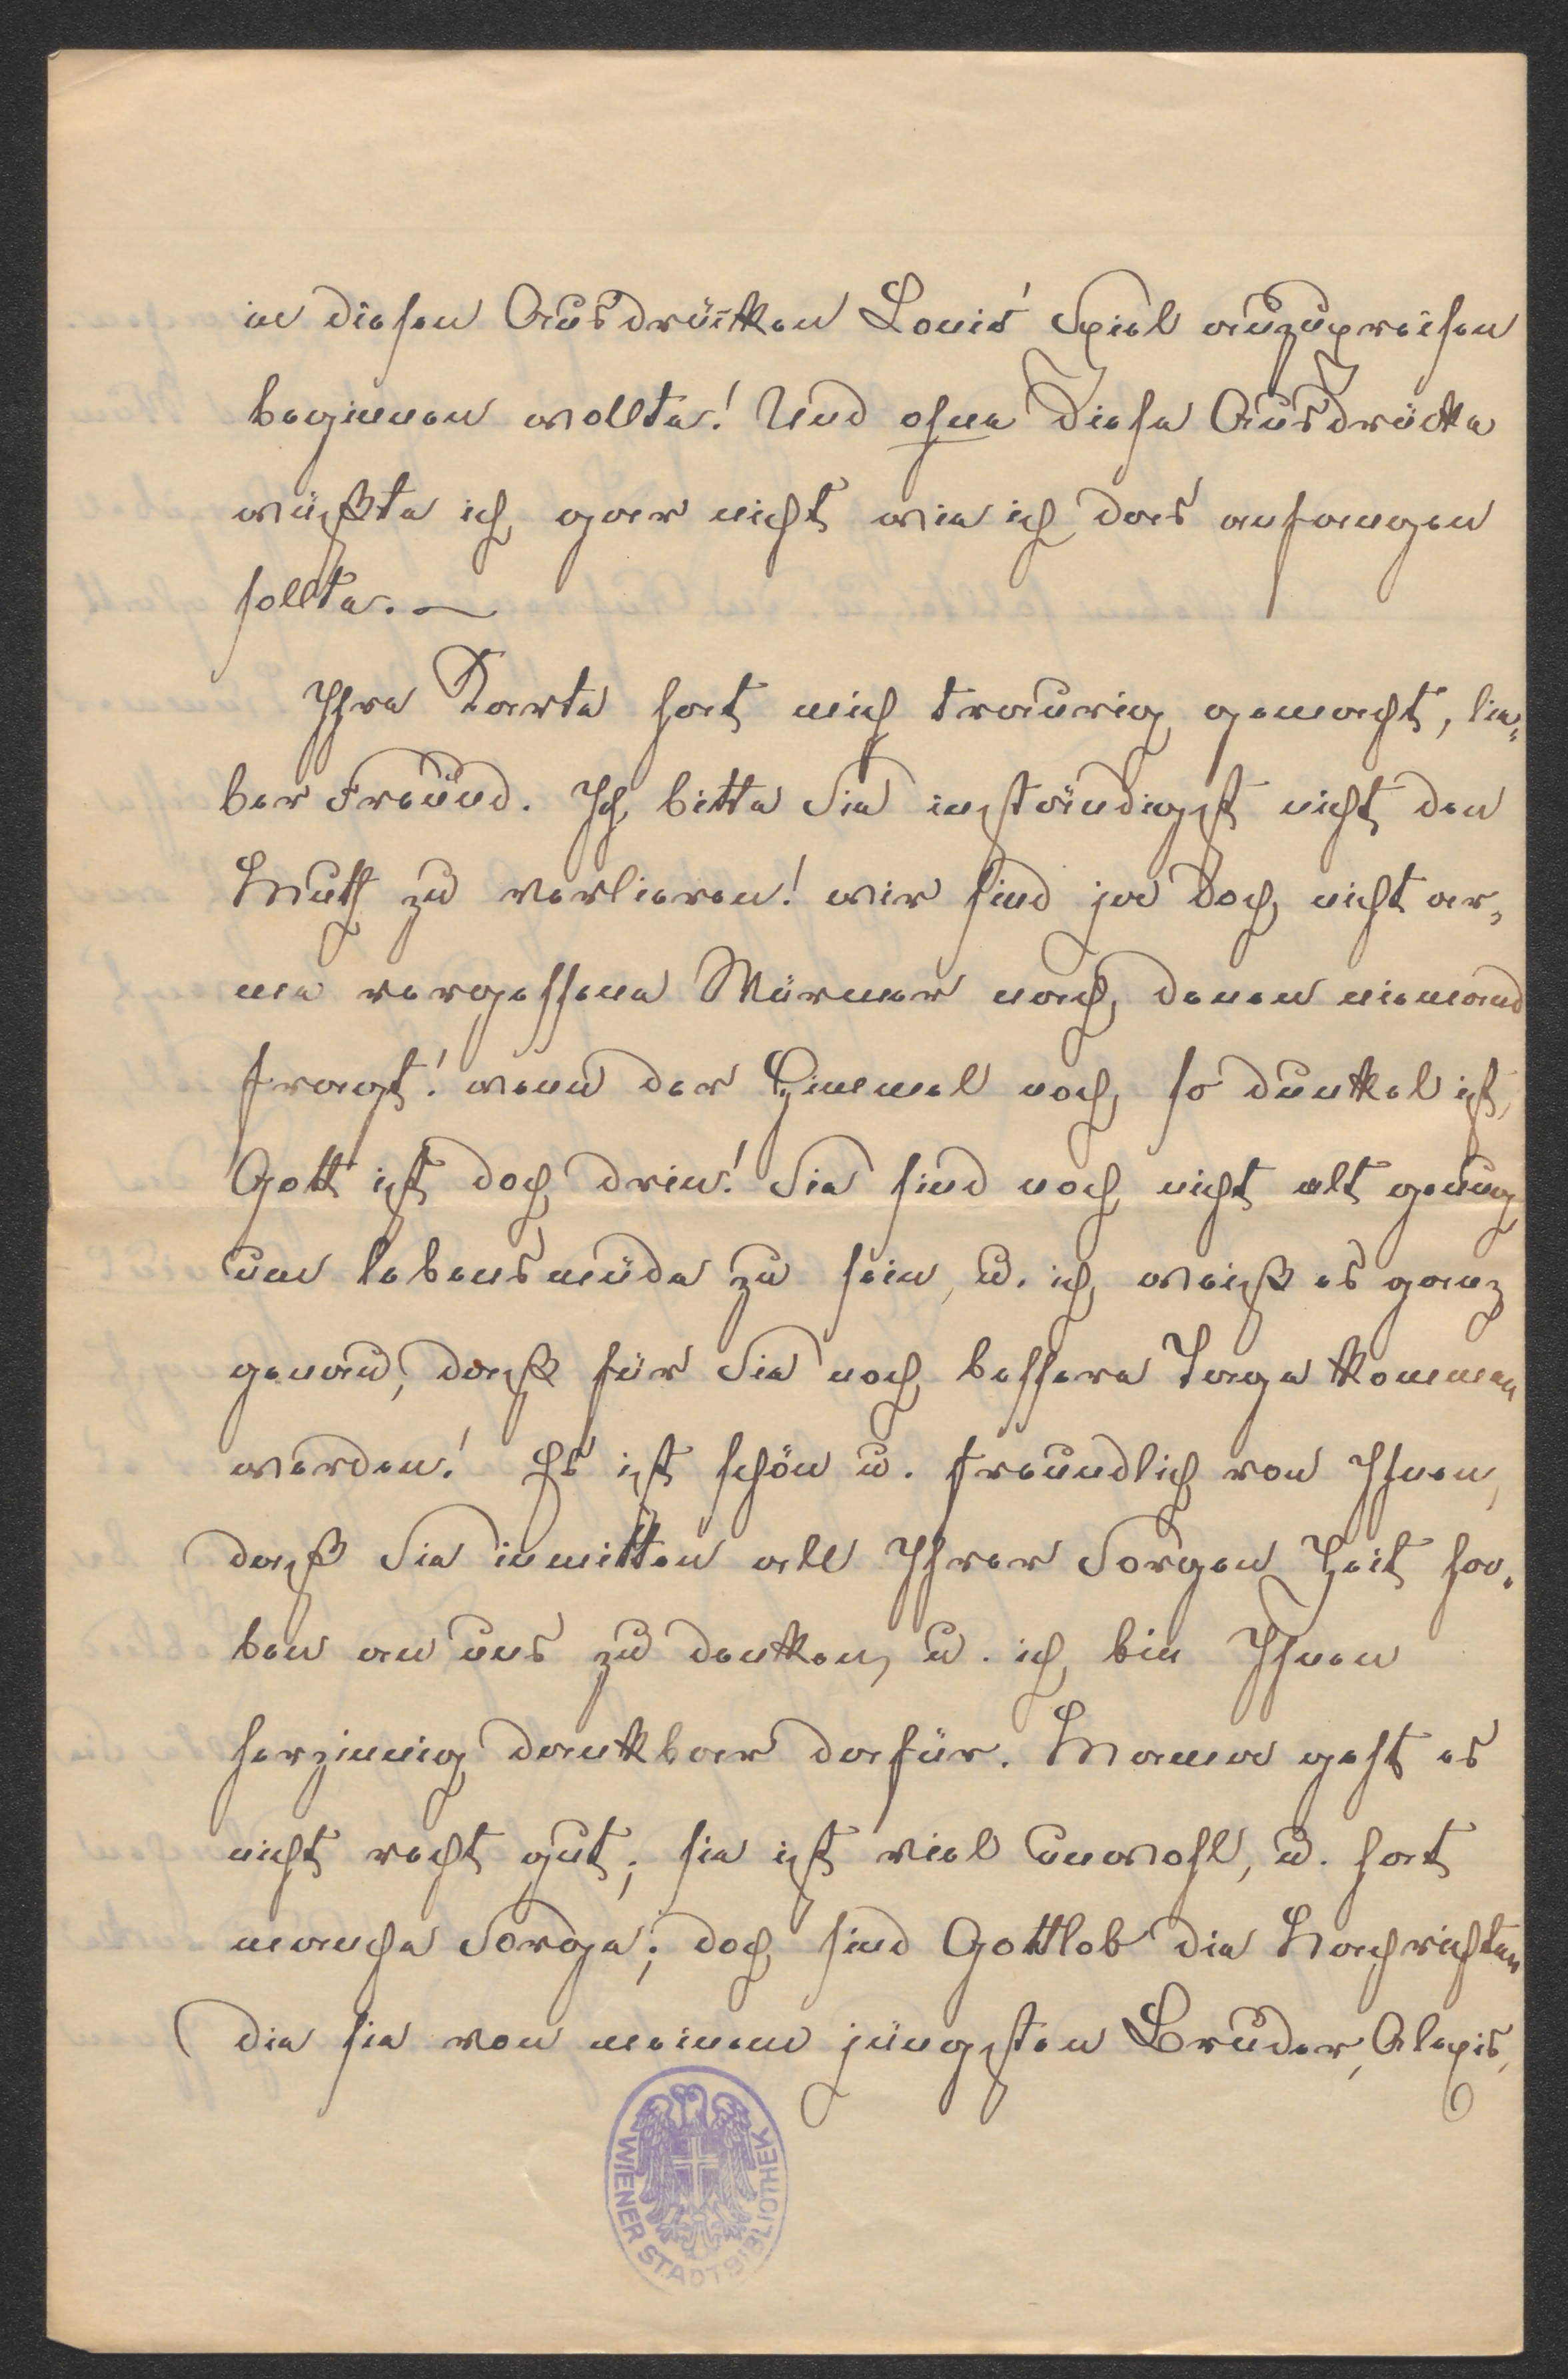 in diesen Ausdrücken Louis' Spiel anzupreisen
beginnen wollte! Und ohne diese Ausdrücke
wüßte ich gar nicht wie ich das anfangen
sollte. —
Ihre Karte hat mich traurig gemacht, lie-
ber Freund. Ich bitte Sie inständigst nicht den
Muth zu verlieren! wir sind ja doch nicht ar-
me vergessene Würmer nach denen niemand
fragt! wenn der Himmel noch so dunkel ist,
Gott ist doch drin! Sie sind noch nicht alt genug
um lebensmüde zu sein, u. ich weiß es ganz
genau, daß für Sie noch bessere Tage kommen
werden! Es ist schön u. freundlich von Ihnen,
daß Sie inmitten all Ihrer Sorgen Zeit ha-
ben an uns zu denken, u. ich bin Ihnen
herzinnig dankbar dafür. Mama geht es
nicht recht gut; sie ist viel unwohl, u. hat
manche Sorge; doch sind Gottlob die Nachrichten
die sie von meinem jüngsten Bruder, Alexis,
WIENER STADTBIBLIOTHEK